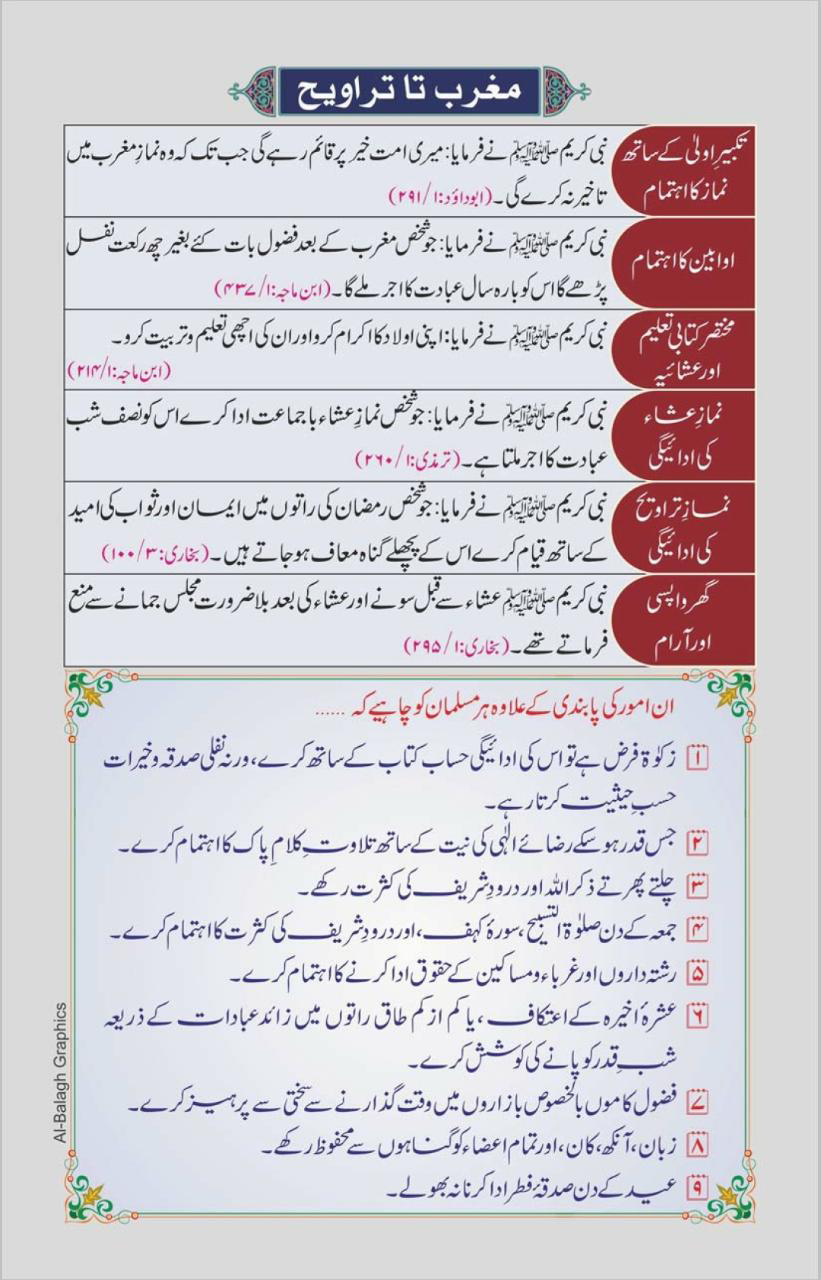 مغرب تا تراویح
تکبیرِ اولیٰ کے ساتھ
نماز کا اہتمام
نبی کریم ﷺ نے فرمایا: میری امت خیر پر قائم رہے گی جب تک کہ وہ نمازِ مغرب میں
تاخیر نہ کرے گی۔ (ابوداؤد: ۱/ ۲۹۱)
اوابین کا اہتمام
نبی کریم ﷺ نے فرمایا: جو شخص مغرب کے بعد فضول بات کئے بغیر چھ رکعت نفل
پڑھے گا اس کو بارہ سال عبادت کا اجر ملے گا۔ (ابن ماجہ: ۱/ ۴۳۷)
مختصر کتابی تعلیم
اور عشائیہ
نبی کریم ﷺ نے فرمایا: اپنی اولاد کا اکرام کرو اور ان کی اچھی تعلیم و تربیت کرو۔
(ابن ماجہ: ۱/ ۲۱۴)
نمازِ عشاء
کی ادائیگی
نبی کریم ﷺ نے فرمایا: جو شخص نمازِ عشاء باجماعت ادا کرے اس کو نصف شب
عبادت کا اجر ملتا ہے۔ (ترمذی: ۱/ ۲۶۰)
نمازِ تراویح
کی ادائیگی
نبی کریم ﷺ نے فرمایا: جو شخص رمضان کی راتوں میں ایمان اور ثواب کی امید
کے ساتھ قیام کرے اس کے پچھلے گناہ معاف ہوجاتے ہیں۔ (بخاری: ۳/ ۱۰۰)
گھر واپسی
اور آرام
نبی کریم ﷺ عشاء سے قبل سونے اور عشاء کی بعد بلاضرورت مجلس جمانے سے منع
فرماتے تھے۔ (بخاری: ۱/ ۲۹۵)
ان امور کی پابندی کے علاوہ ہر مسلمان کو چاہیے کہ ......
۱ زکوٰۃ فرض ہے تو اس کی ادائیگی حساب کتاب کے ساتھ کرے، ورنہ نفلی صدقہ و خیرات
حسبِ حیثیت کرتا رہے۔
۲ جس قدر ہوسکے رضائے الٰہی کی نیت کے ساتھ تلاوتِ کلامِ پاک کا اہتمام کرے۔
۳ چلتے پھرتے ذکر اللہ اور درود شریف کی کثرت رکھے۔
۴ جمعہ کے دن صلوٰۃ التسبیح، سورۂ کہف، اور درود شریف کی کثرت کا اہتمام کرے۔
۵ رشتہ داروں اور غرباء و مساکین کے حقوق ادا کرنے کا اہتمام کرے۔
۶ عشرۂ اخیرہ کے اعتکاف، یا کم از کم طاق راتوں میں زائد عبادات کے ذریعہ
شبِ قدر کو پانے کی کوشش کرے۔
۷ فضول کاموں بالخصوص بازاروں میں وقت گذارنے سے سختی سے پرہیز کرے۔
۸ زبان، آنکھ، کان، اور تمام اعضاء کو گناہوں سے محفوظ رکھے۔
۹ عید کے دن صدقۂ فطر ادا کرنا نہ بھولے۔
Al-Balagh Graphics